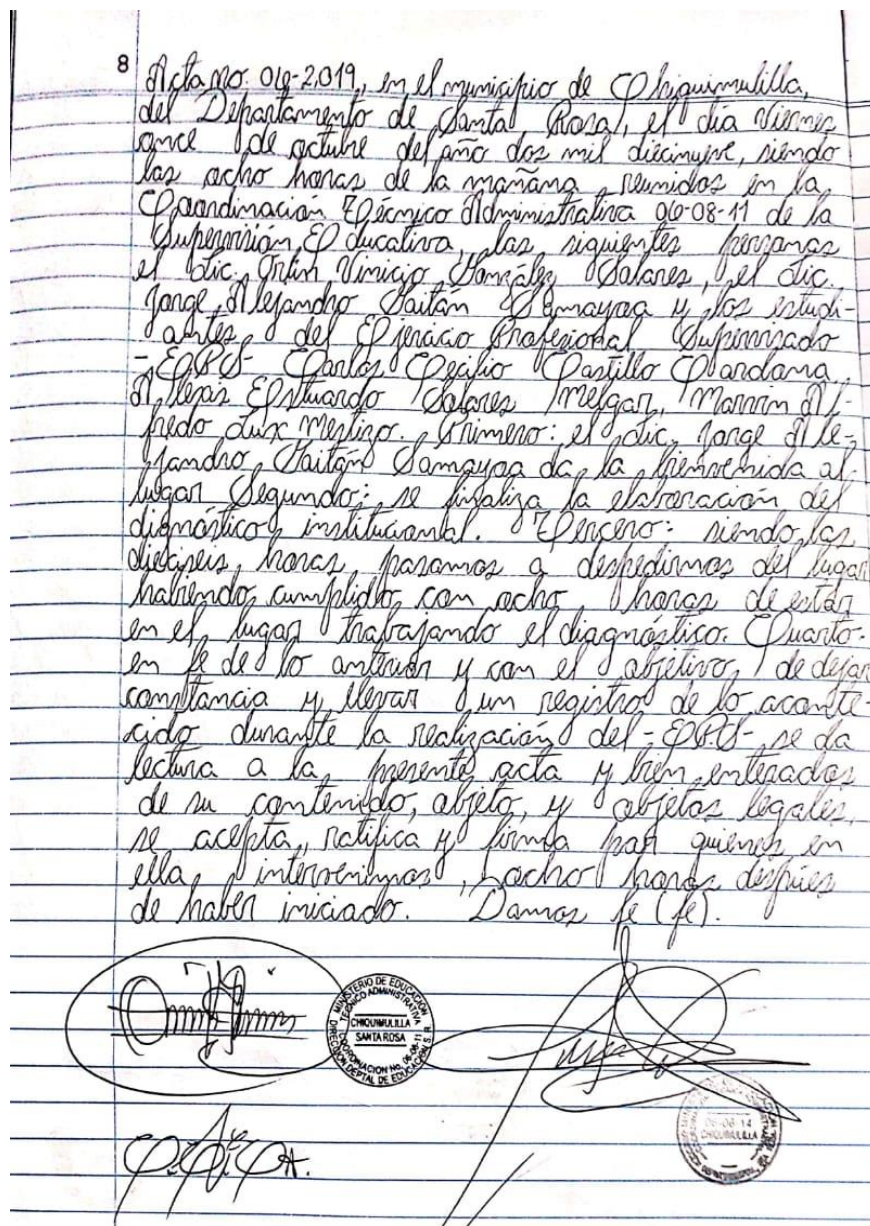 8
Acta no. 04-2,019, en el municipio de Chiquimulilla,
del Departamento de Santa Rosa, el día viernes
once de octubre del año dos mil diecinueve, siendo
las ocho horas de la mañana, reunidos en la
Coordinación Técnico Administrativa 06-08-11 de la
Supervisión Educativa, las siguientes personas
el Lic. Orlin Vinicio González Solares, el Lic.
Jorge Alejandro Gaitán Samayoa y los estudi-
antes del Ejercicio Profesional Supervisado
-EPS- Carlos Cecilio Castillo Cardona,
Alexis Estuardo Solares Melgar, Marvin Al-
fredo Lux Mestizo. Primero: el Lic. Jorge Ale-
jandro Gaitán Samayoa da la bienvenida al
lugar Segundo: se finaliza la elaboración del
diagnóstico institucional. Tercero: siendo las
dieciseis horas, pasamos a despedirnos del lugar
habiendo cumplido con ocho horas de estar
en el lugar trabajando el diagnóstico. Cuarto:
en fe de lo anterior y con el objetivo de dejar
constancia y llevar un registro de lo aconte-
cido durante la realización del -EPS- se da
lectura a la presente acta y bien enterados
de su contenido, objeto, y objetos legales,
se acepta, ratifica y firma por quienes en
ella intervenimos, ocho horas despúes
de haber iniciado. Damos fe (fe).
MINISTERIO DE EDUCACION
TECNICO ADMINISTRATIVA
CHIQUIMULILLA
SANTA ROSA
COORDINACION No. 06-08-11
DIRECCION DEPTAL DE EDUCACION S. R.
06-08-14
CHIQUIMULILLA